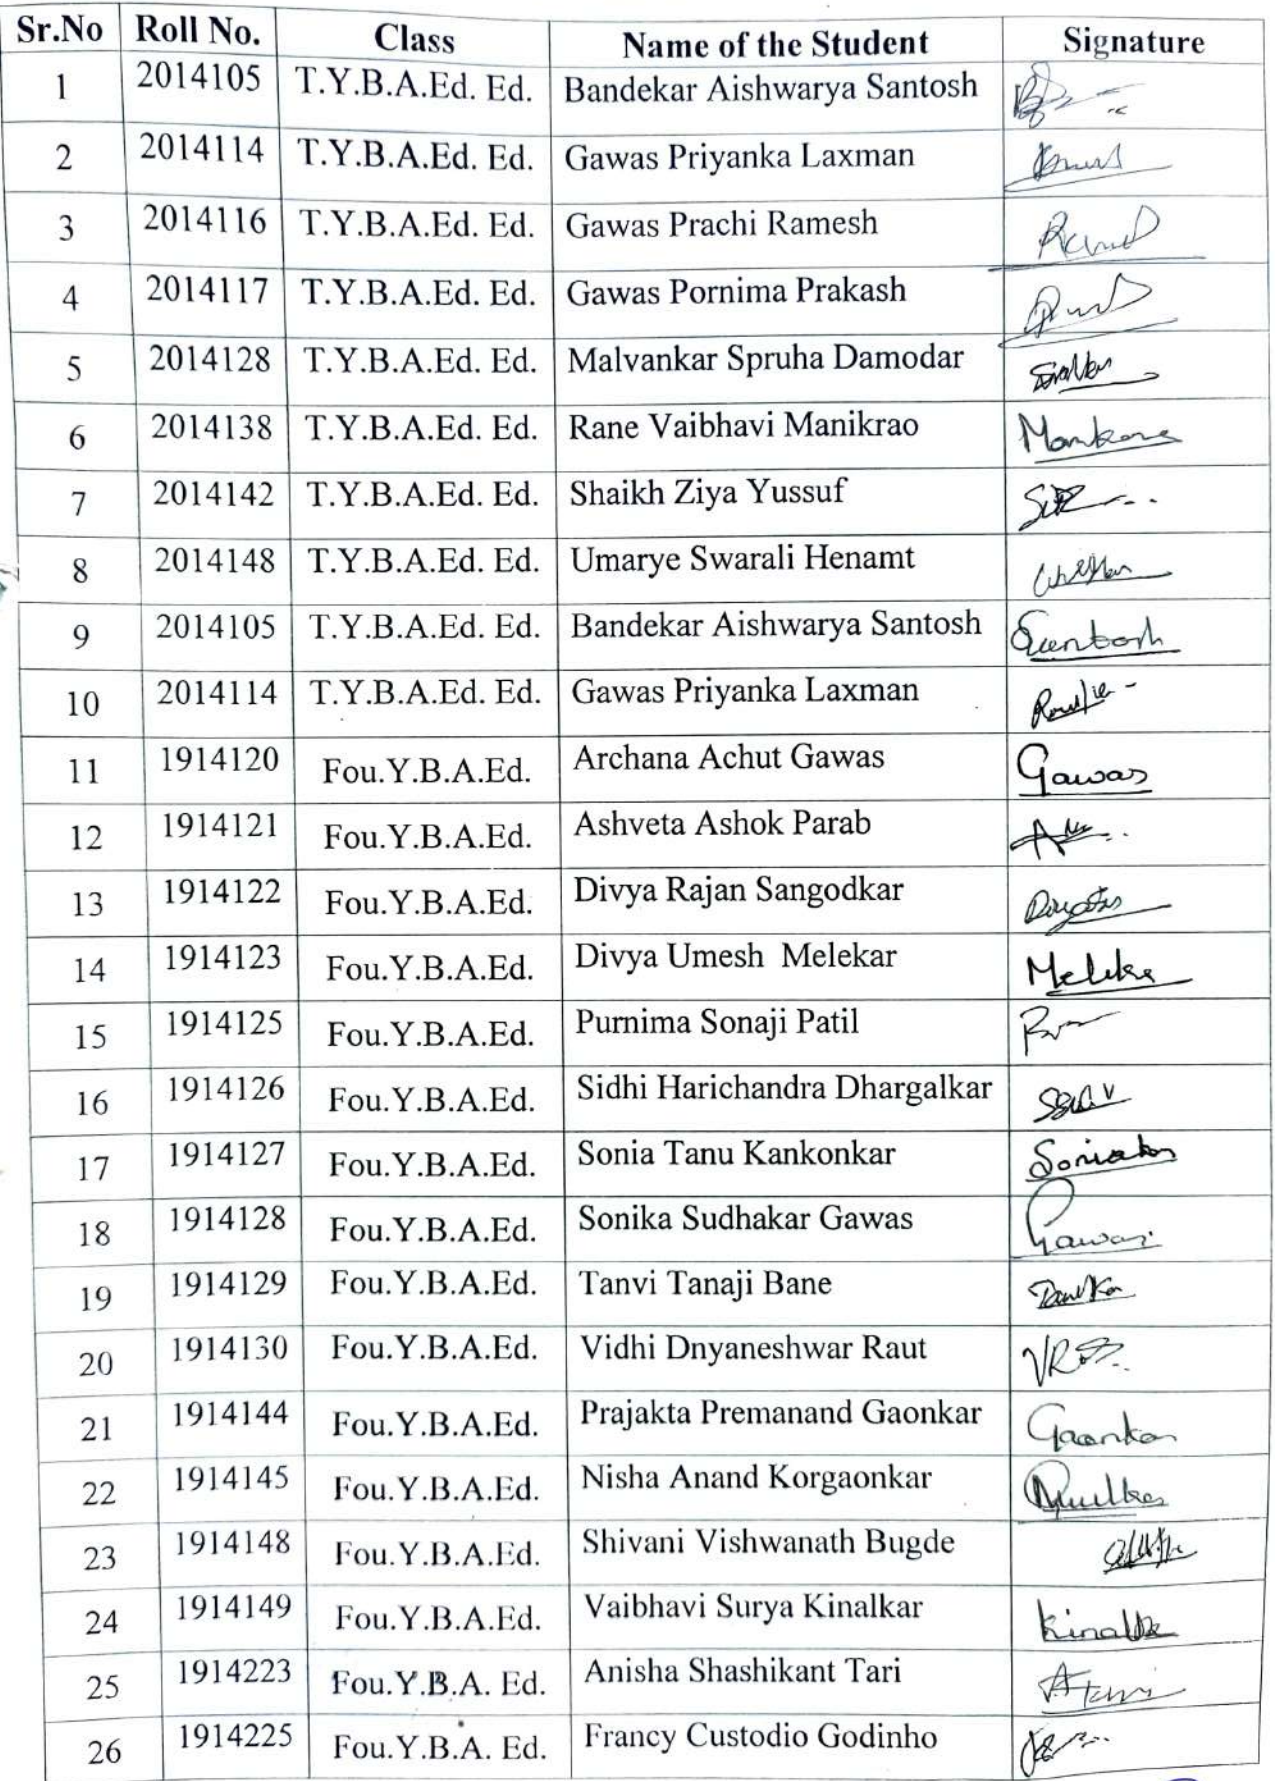 Sr.No Roll No. Class Name of the Student Signature
1 2014105 T.Y.B.A.Ed. Ed. Bandekar Aishwarya Santosh
2 2014114 T.Y.B.A.Ed. Ed. Gawas Priyanka Laxman
3 2014116 T.Y.B.A.Ed. Ed. Gawas Prachi Ramesh
4 2014117 T.Y.B.A.Ed. Ed. Gawas Pornima Prakash
5 2014128 T.Y.B.A.Ed. Ed. Malvankar Spruha Damodar
6 2014138 T.Y.B.A.Ed. Ed. Rane Vaibhavi Manikrao
7 2014142 T.Y.B.A.Ed. Ed. Shaikh Ziya Yussuf
8 2014148 T.Y.B.A.Ed. Ed. Umarye Swarali Henamt
9 2014105 T.Y.B.A.Ed. Ed. Bandekar Aishwarya Santosh Santosh
10 2014114 T.Y.B.A.Ed. Ed. Gawas Priyanka Laxman
11 1914120 Fou.Y.B.A.Ed. Archana Achut Gawas Gawas
12 1914121 Fou.Y.B.A.Ed. Ashveta Ashok Parab
13 1914122 Fou.Y.B.A.Ed. Divya Rajan Sangodkar
14 1914123 Fou.Y.B.A.Ed. Divya Umesh Melekar
15 1914125 Fou.Y.B.A.Ed. Purnima Sonaji Patil
16 1914126 Fou.Y.B.A.Ed. Sidhi Harichandra Dhargalkar
17 1914127 Fou.Y.B.A.Ed. Sonia Tanu Kankonkar
18 1914128 Fou.Y.B.A.Ed. Sonika Sudhakar Gawas Gawas
19 1914129 Fou.Y.B.A.Ed. Tanvi Tanaji Bane
20 1914130 Fou.Y.B.A.Ed. Vidhi Dnyaneshwar Raut
21 1914144 Fou.Y.B.A.Ed. Prajakta Premanand Gaonkar
22 1914145 Fou.Y.B.A.Ed. Nisha Anand Korgaonkar
23 1914148 Fou.Y.B.A.Ed. Shivani Vishwanath Bugde
24 1914149 Fou.Y.B.A.Ed. Vaibhavi Surya Kinalkar
25 1914223 Fou.Y.B.A. Ed. Anisha Shashikant Tari
26 1914225 Fou.Y.B.A. Ed. Francy Custodio Godinho